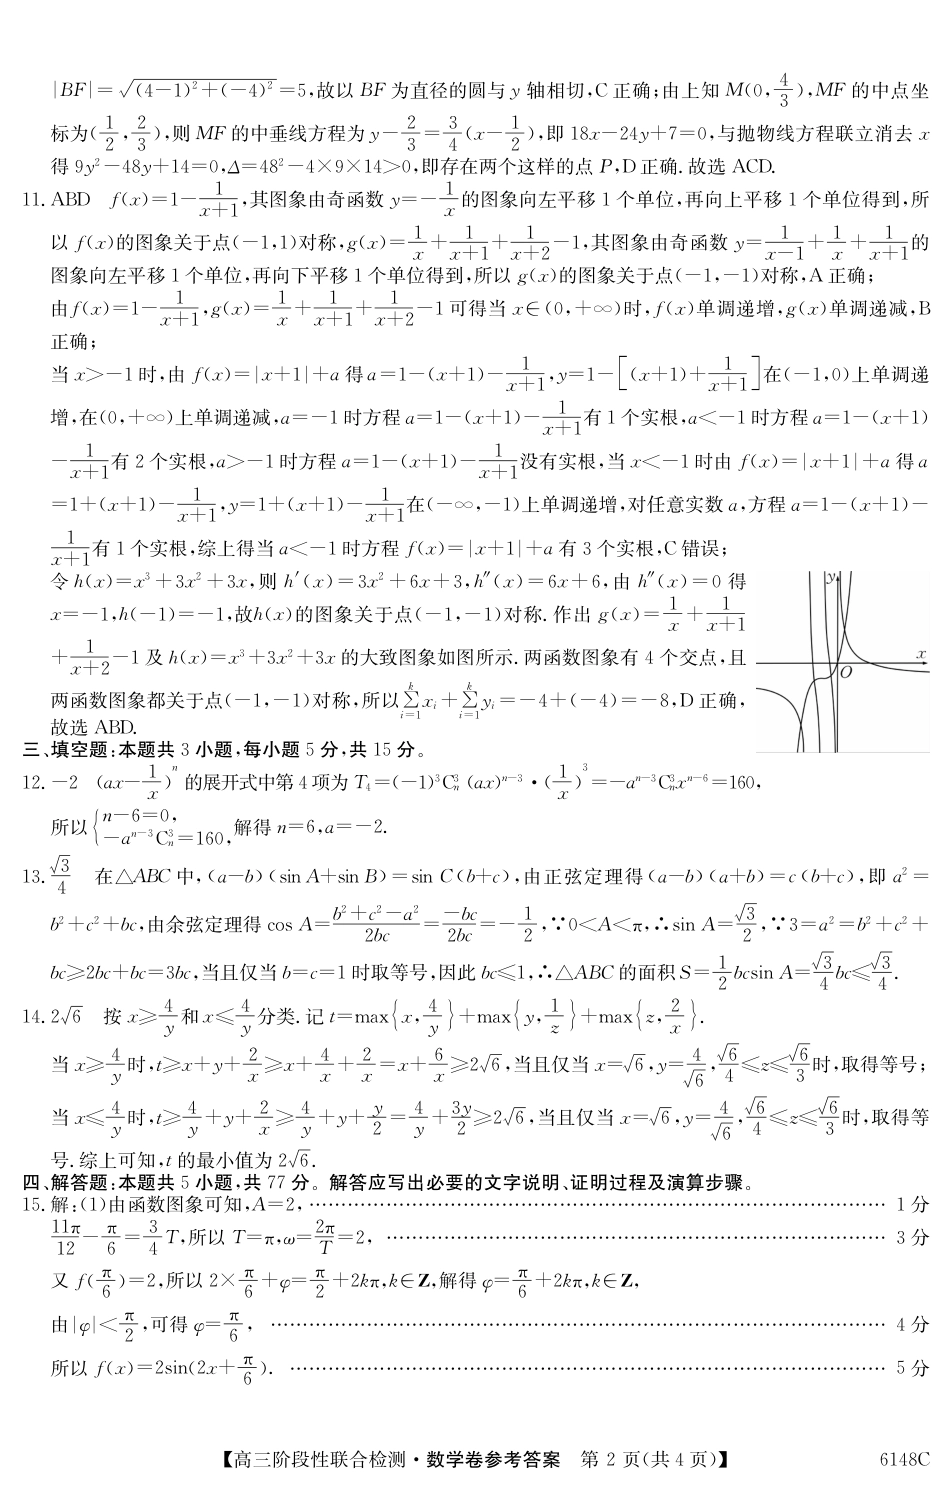 |BF|=√((4-1)²+(-4)²)=5,故以 BF 为直径的圆与 y 轴相切,C 正确;由上知 M(0,4/3),MF 的中点坐
标为(1/2,2/3),则 MF 的中垂线方程为 y-2/3=3/4(x-1/2),即 18x-24y+7=0,与抛物线方程联立消去 x
得 9y²-48y+14=0,Δ=48²-4×9×14>0,即存在两个这样的点 P,D 正确. 故选 ACD.
11. ABD f(x)=1-1/(x+1),其图象由奇函数 y=-1/x 的图象向左平移 1 个单位,再向上平移 1 个单位得到,所
以 f(x)的图象关于点(-1,1)对称,g(x)=1/x+1/(x+1)+1/(x+2)-1,其图象由奇函数 y=1/(x-1)+1/x+1/(x+1)的
图象向左平移 1 个单位,再向下平移 1 个单位得到,所以 g(x)的图象关于点(-1,-1)对称,A 正确;
由 f(x)=1-1/(x+1),g(x)=1/x+1/(x+1)+1/(x+2)-1 可得当 x∈(0,+∞)时,f(x)单调递增,g(x)单调递减,B
正确;
当 x>-1 时,由 f(x)=|x+1|+a 得 a=1-(x+1)-1/(x+1),y=1-[(x+1)+1/(x+1)]在(-1,0)上单调递
增,在(0,+∞)上单调递减,a=-1 时方程 a=1-(x+1)-1/(x+1)有 1 个实根,a<-1 时方程 a=1-(x+1)
-1/(x+1)有 2 个实根,a>-1 时方程 a=1-(x+1)-1/(x+1)没有实根,当 x<-1 时由 f(x)=|x+1|+a 得 a
=1+(x+1)-1/(x+1),y=1+(x+1)-1/(x+1)在(-∞,-1)上单调递增,对任意实数 a,方程 a=1-(x+1)-
1/(x+1)有 1 个实根,综上得当 a<-1 时方程 f(x)=|x+1|+a 有 3 个实根,C 错误;
令 h(x)=x³+3x²+3x,则 h′(x)=3x²+6x+3,h″(x)=6x+6,由 h″(x)=0 得
x=-1,h(-1)=-1,故h(x)的图象关于点(-1,-1)对称. 作出 g(x)=1/x+1/(x+1)
+1/(x+2)-1 及 h(x)=x³+3x²+3x 的大致图象如图所示. 两函数图象有 4 个交点,且
两函数图象都关于点(-1,-1)对称,所以∑_{i=1}^{k}xᵢ+∑_{i=1}^{k}yᵢ=-4+(-4)=-8,D 正确,
故选 ABD.
y
x
O
三、填空题:本题共 3 小题,每小题 5 分,共 15 分。
12. -2 (ax-1/x)ⁿ 的展开式中第 4 项为 T₄=(-1)³C_n^3(ax)^{n-3}·(1/x)³=-a^{n-3}C_n^3x^{n-6}=160,
所以{n-6=0, -a^{n-3}C_n^3=160, 解得 n=6,a=-2.
13. √3/4 在△ABC 中,(a-b)(sin A+sin B)=sin C(b+c),由正弦定理得(a-b)(a+b)=c(b+c),即 a²=
b²+c²+bc,由余弦定理得 cos A=(b²+c²-a²)/2bc=-bc/2bc=-1/2,∵0<A<π,∴sin A=√3/2,∵3=a²=b²+c²+
bc≥2bc+bc=3bc,当且仅当 b=c=1 时取等号,因此 bc≤1,∴△ABC 的面积 S=1/2bcsin A=√3/4bc≤√3/4.
14. 2√6 按 x≥4/y 和 x≤4/y 分类. 记 t=max{x,4/y}+max{y,1/z}+max{z,2/x}.
当 x≥4/y 时,t≥x+y+2/x≥x+4/x+2/x=x+6/x≥2√6,当且仅当 x=√6,y=4/√6,√6/4≤z≤√6/3 时,取得等号;
当 x≤4/y 时,t≥4/y+y+2/x≥4/y+y+y/2=4/y+3y/2≥2√6,当且仅当 x=√6,y=4/√6,√6/4≤z≤√6/3 时,取得等
号. 综上可知,t 的最小值为 2√6.
四、解答题:本题共 5 小题,共 77 分。解答应写出必要的文字说明、证明过程及演算步骤。
15. 解:(1)由函数图象可知,A=2,…………………………………………………… 1 分
11π/12-π/6=3/4T,所以 T=π,ω=2π/T=2,…………………………………………………… 3 分
又 f(π/6)=2,所以 2×π/6+φ=π/2+2kπ,k∈Z,解得 φ=π/6+2kπ,k∈Z,
由|φ|<π/2,可得 φ=π/6,…………………………………………………… 4 分
所以 f(x)=2sin(2x+π/6). …………………………………………………… 5 分
【高三阶段性联合检测·数学卷参考答案 第 2 页(共 4 页)】 6148C